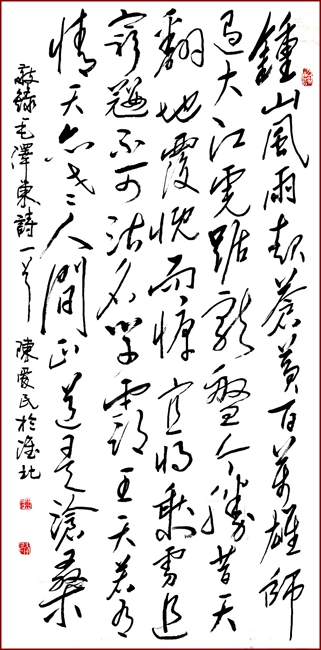 鍾山風雨起蒼黃百萬雄師
過大江虎踞龍盤今勝昔天
翻地覆慨而慷宜將剩勇追
窮寇不可沽名學霸王天若有
情天亦老人間正道是滄桑
敬錄毛澤東詩一首 陳愛民於淮北